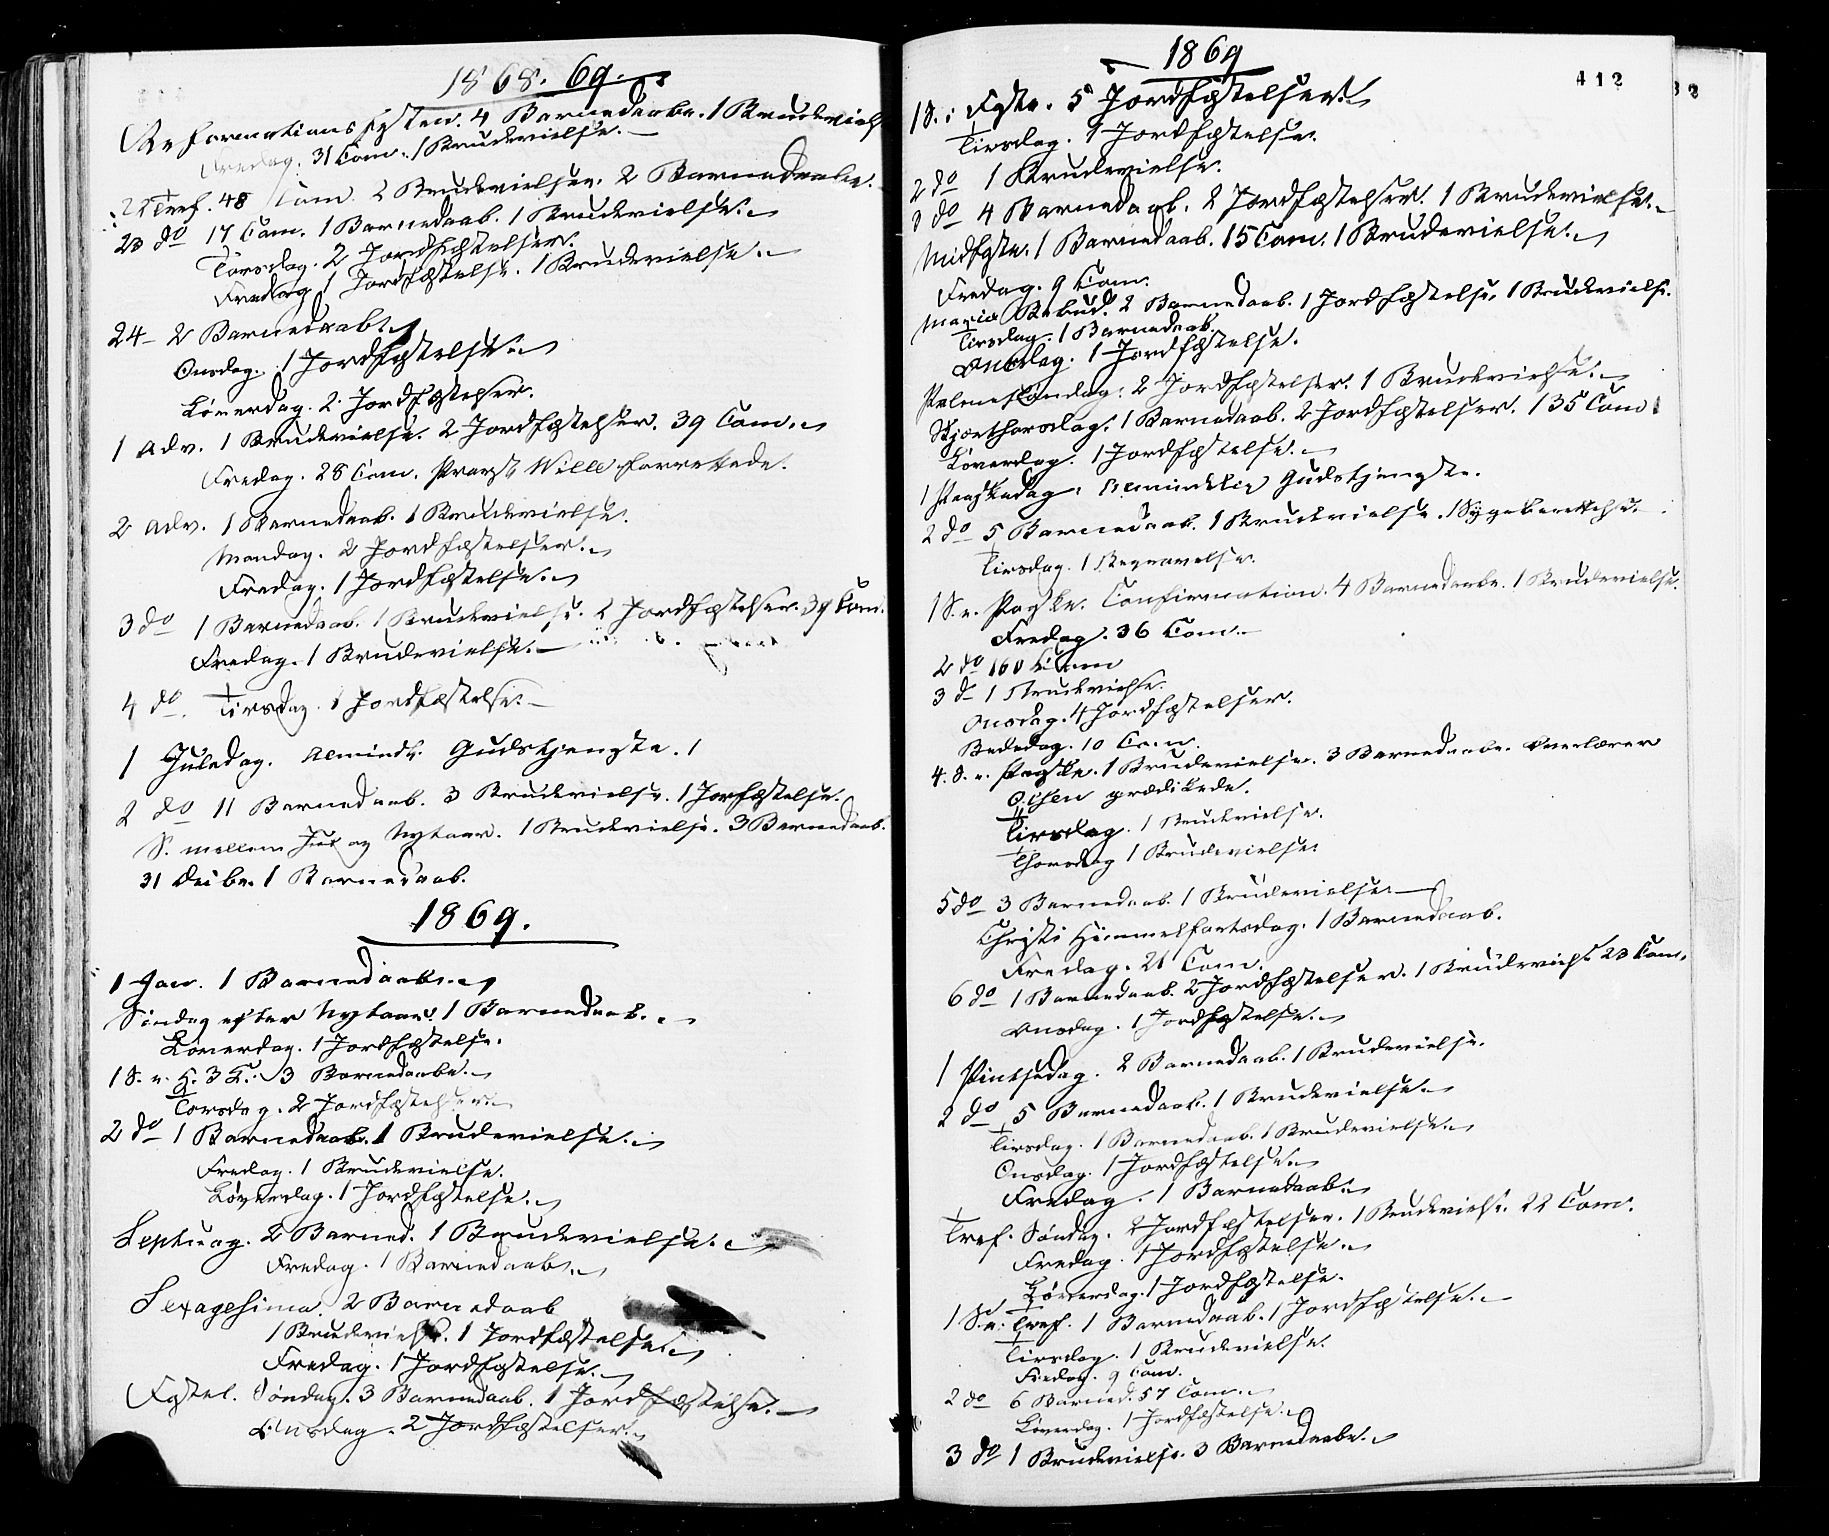 1868. 69.
Reformationsfesten. 4 Barnedaabe. 1 Brudeviels
Fredag. 31 Com. 1 Brudevielse.
22 Tref. 48 Com. 2 Brudevielser. 2 Barnedaabe.
23 do 17 Com. 1 Barnedaab. 1 Brudevielse.
Torsdag. 2 Jordfæstelser.
Fredag 1 Jordfæstelse. 1 Brudevielse.
24 - 2 Barnedaab.
Onsdag. 1 Jordfæstelse.
Löverdag. 2 Jordfæstelser.
1 Adv. 1 Brudevielse. 2 Jordfæstelser. 39 Com.
Fredag. 28 Com. Provst Wille forrettede.
2 Adv. 1 Barnedaab. 1 Brudevielse.
Mandag. 2 Jordfæstelser.
Fredag. 1 Jordfæstelse.
3 do 1 Barnedaab. 1 Brudevielse. 2 Jordfæstelser. 39 Com.
Fredag. 1 Brudevielse.
4 do. Tirsdag. 1 Jordfæstelse.
1 Juledag. Almindl. Gudstjeneste.
2 do 11 Barnedaab. 3 Brudevielse. 1 Jorfæstelse.
S. mellem Jul og Nytaar. 1 Brudevielse. 3 Barnedaab.
31 Decbr. 1 Barnedaab.
1869.
1 Jan. 1 Barnedaab.
Söndag efter Nytaar. 1 Barnedaab.
Löverdag. 1 Jordfæstelse.
1 S. e. H. 3 K. 3 Barnedaabe.
Torsdag. 2 Jordfæstelser.
2 do 1 Barnedaab. 1 Brudevielse.
Fredag. 1 Brudevielse.
Löverdag. 1 Jordfæstelse.
Septuag. 2 Barned. 1 Brudevielse.
Fredag. 1 Barnedaab.
Sexagesima. 2 Barnedaab
1 Brudevielse. 1 Jordfæstelse.
Fredag. 1 Jordfæstelse.
Fastel. Söndag. 3 Barnedaab. 1 Jordfæstelse.
Onsdag. 2 Jordfæstelser.
1869
412
1 S. i Faste. 5 Jordfæstelser.
Tirsdag. 1 Jordfæstelse.
2 do 1 Brudevielse.
3 do 4 Barnedaab. 2 Jordfæstelser. 1 Brudevielse.
Midfaste. 1 Barnedaab. 15 Com. 1 Brudevielse.
Fredag. 9 Com.
Maria Bebud. 2 Barnedaab. 1 Jordfæstelse. 1 Brudevielse.
Tirsdag. 1 Barnedaab.
Onsdag. 1 Jordfæstelse.
Palmesöndag. 2 Jordfæstelser. 1 Brudevielse.
Skjærthorsdag. 1 Barnedaab. 2 Jordfæstelser. 135 Com
Löverdag. 1 Jordfæstelse.
1 Paaskedag. Almindelig Gudstjeneste.
2 do 5 Barnedaab. 1 Brudevielse. 1 Sygeberettelse.
Tirsdag. 1 Begravelse.
1 S. e. Paaske. Confirmation. 4 Barnedaabe. 1 Brudevielse.
Fredag. 36 Com.
2 do 160 Com
3 do 1 Brudevielse.
Onsdag. 4 Jordfæstelser.
Bededag. 10 Com.
4. S. e. Paaske. 1 Brudevielse. 3 Barnedaabe. Overlærer
Olsen prædikede.
Tirsdag. 1 Brudevielse.
Thorsdag 1 Brudevielse.
5 do 3 Barnedaab. 1 Brudevielse
Christi Himmelfartsdag. 1 Barnedaab.
Fredag. 21 Com.
6 do 1 Barnedaab. 2 Jordfæstelser. 1 Brudevielse 23 Com.
Onsdag. 1 Jordfæstelse.
1 Pintsedag. 2 Barnedaab. 1 Brudevielse.
2 do 5 Barnedaab. 1 Brudevielse.
Tirsdag. 1 Barnedaab. 1 Brudevielse.
Onsdag. 1 Jordfæstelse.
Fredag. 1 Barnedaab.
Tref. Söndag. 2 Jordfæstelser. 1 Brudevielse. 22 Com.
Fredag. 1 Jordfæstelse.
Löverdag. 1 Jordfæstelse.
1 S. e. Tref. 1 Barnedaab. 1 Jordfæstelse.
Tirsdag. 1 Brudevielse.
Fredag. 9 Com.
2 do 6 Barned. 57 Com.
Löverdag. 1 Jordfæstelse.
3 do 1 Brudevielse. 3 Barnedaabe.